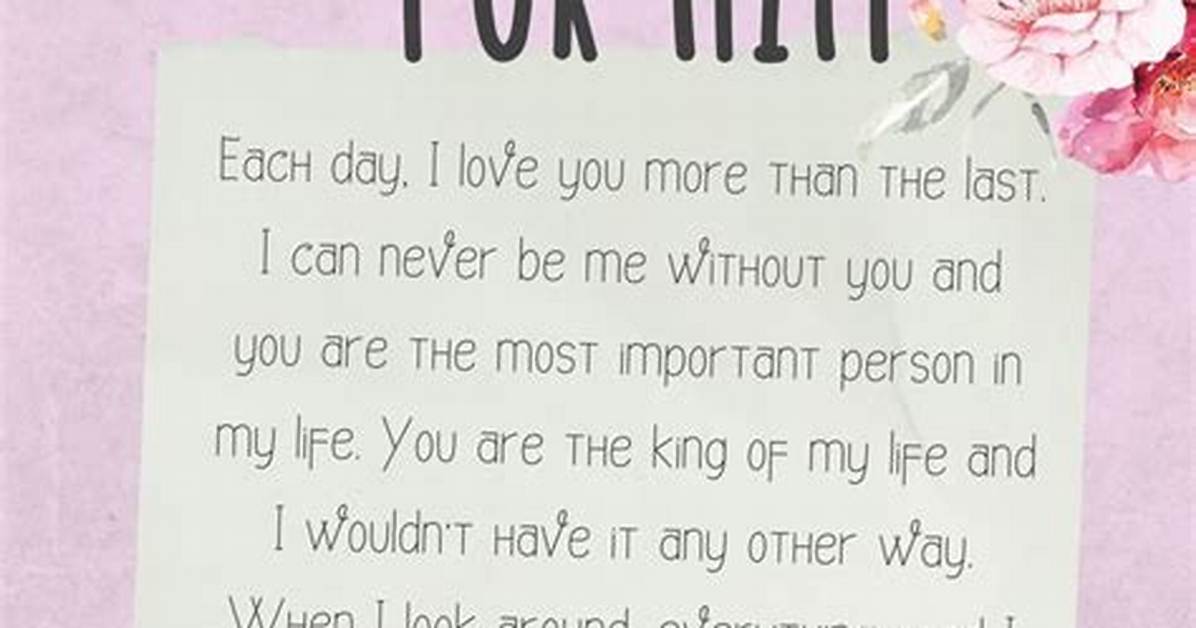 FOR HIM
Each day, I love you more than the last.
I can never be me without you and
you are the most important person in
my life. You are the king of my life and
I wouldn't have it any other way.
When I look around, everything